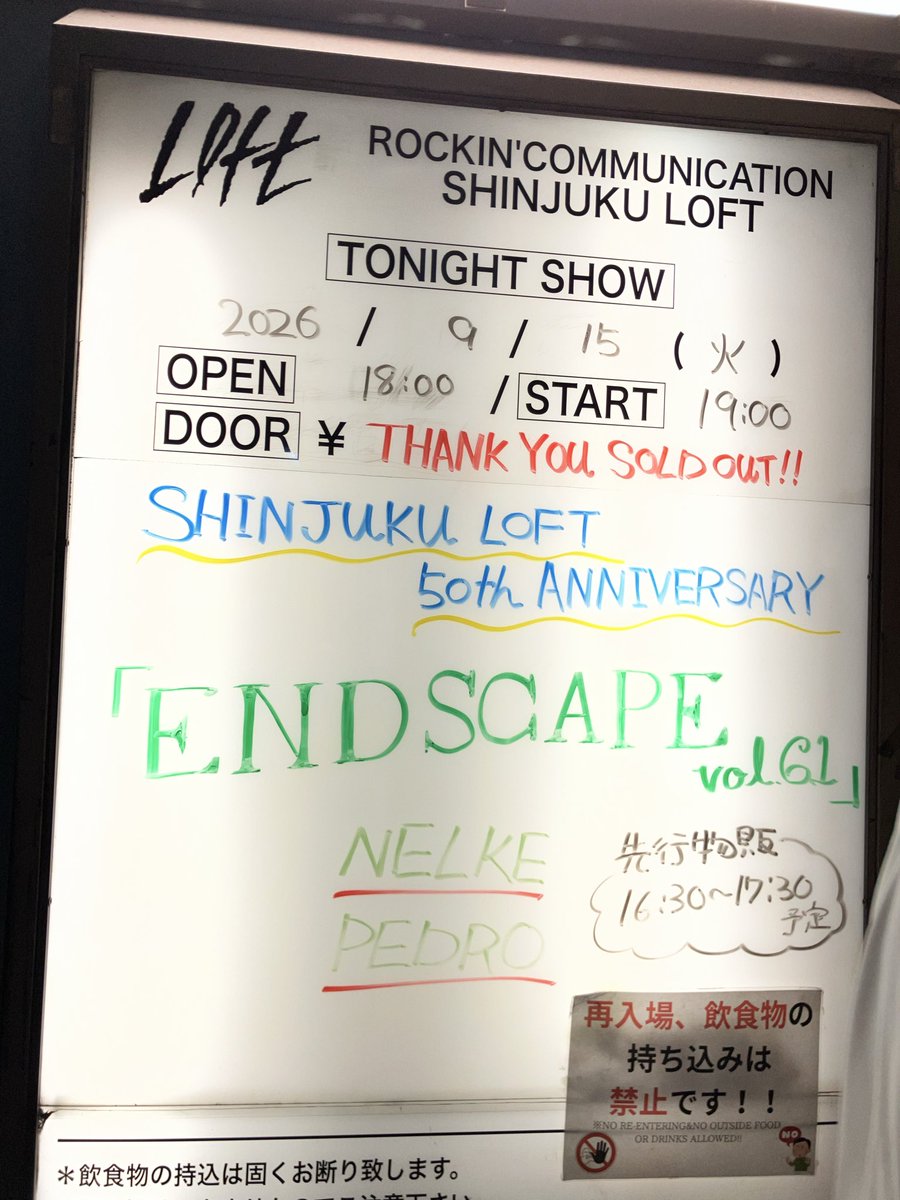 Loft
ROCKIN'COMMUNICATION
SHINJUKU LOFT
TONIGHT SHOW
2026 / 9 / 15 ( 火 )
OPEN 18:00 / START 19:00
DOOR ¥ THANK YOU SOLD OUT!!
SHINJUKU LOFT
50th ANNIVERSARY
「ENDSCAPE
vol.61」
NELKE
PEDRO
先行物販
16:30~17:30
予定
再入場、飲食物の
持ち込みは
禁止です！！
※NO RE-ENTERING&NO OUTSIDE FOOD
OR DRINKS ALLOWED!!
NO
＊飲食物の持込は固くお断り致します。